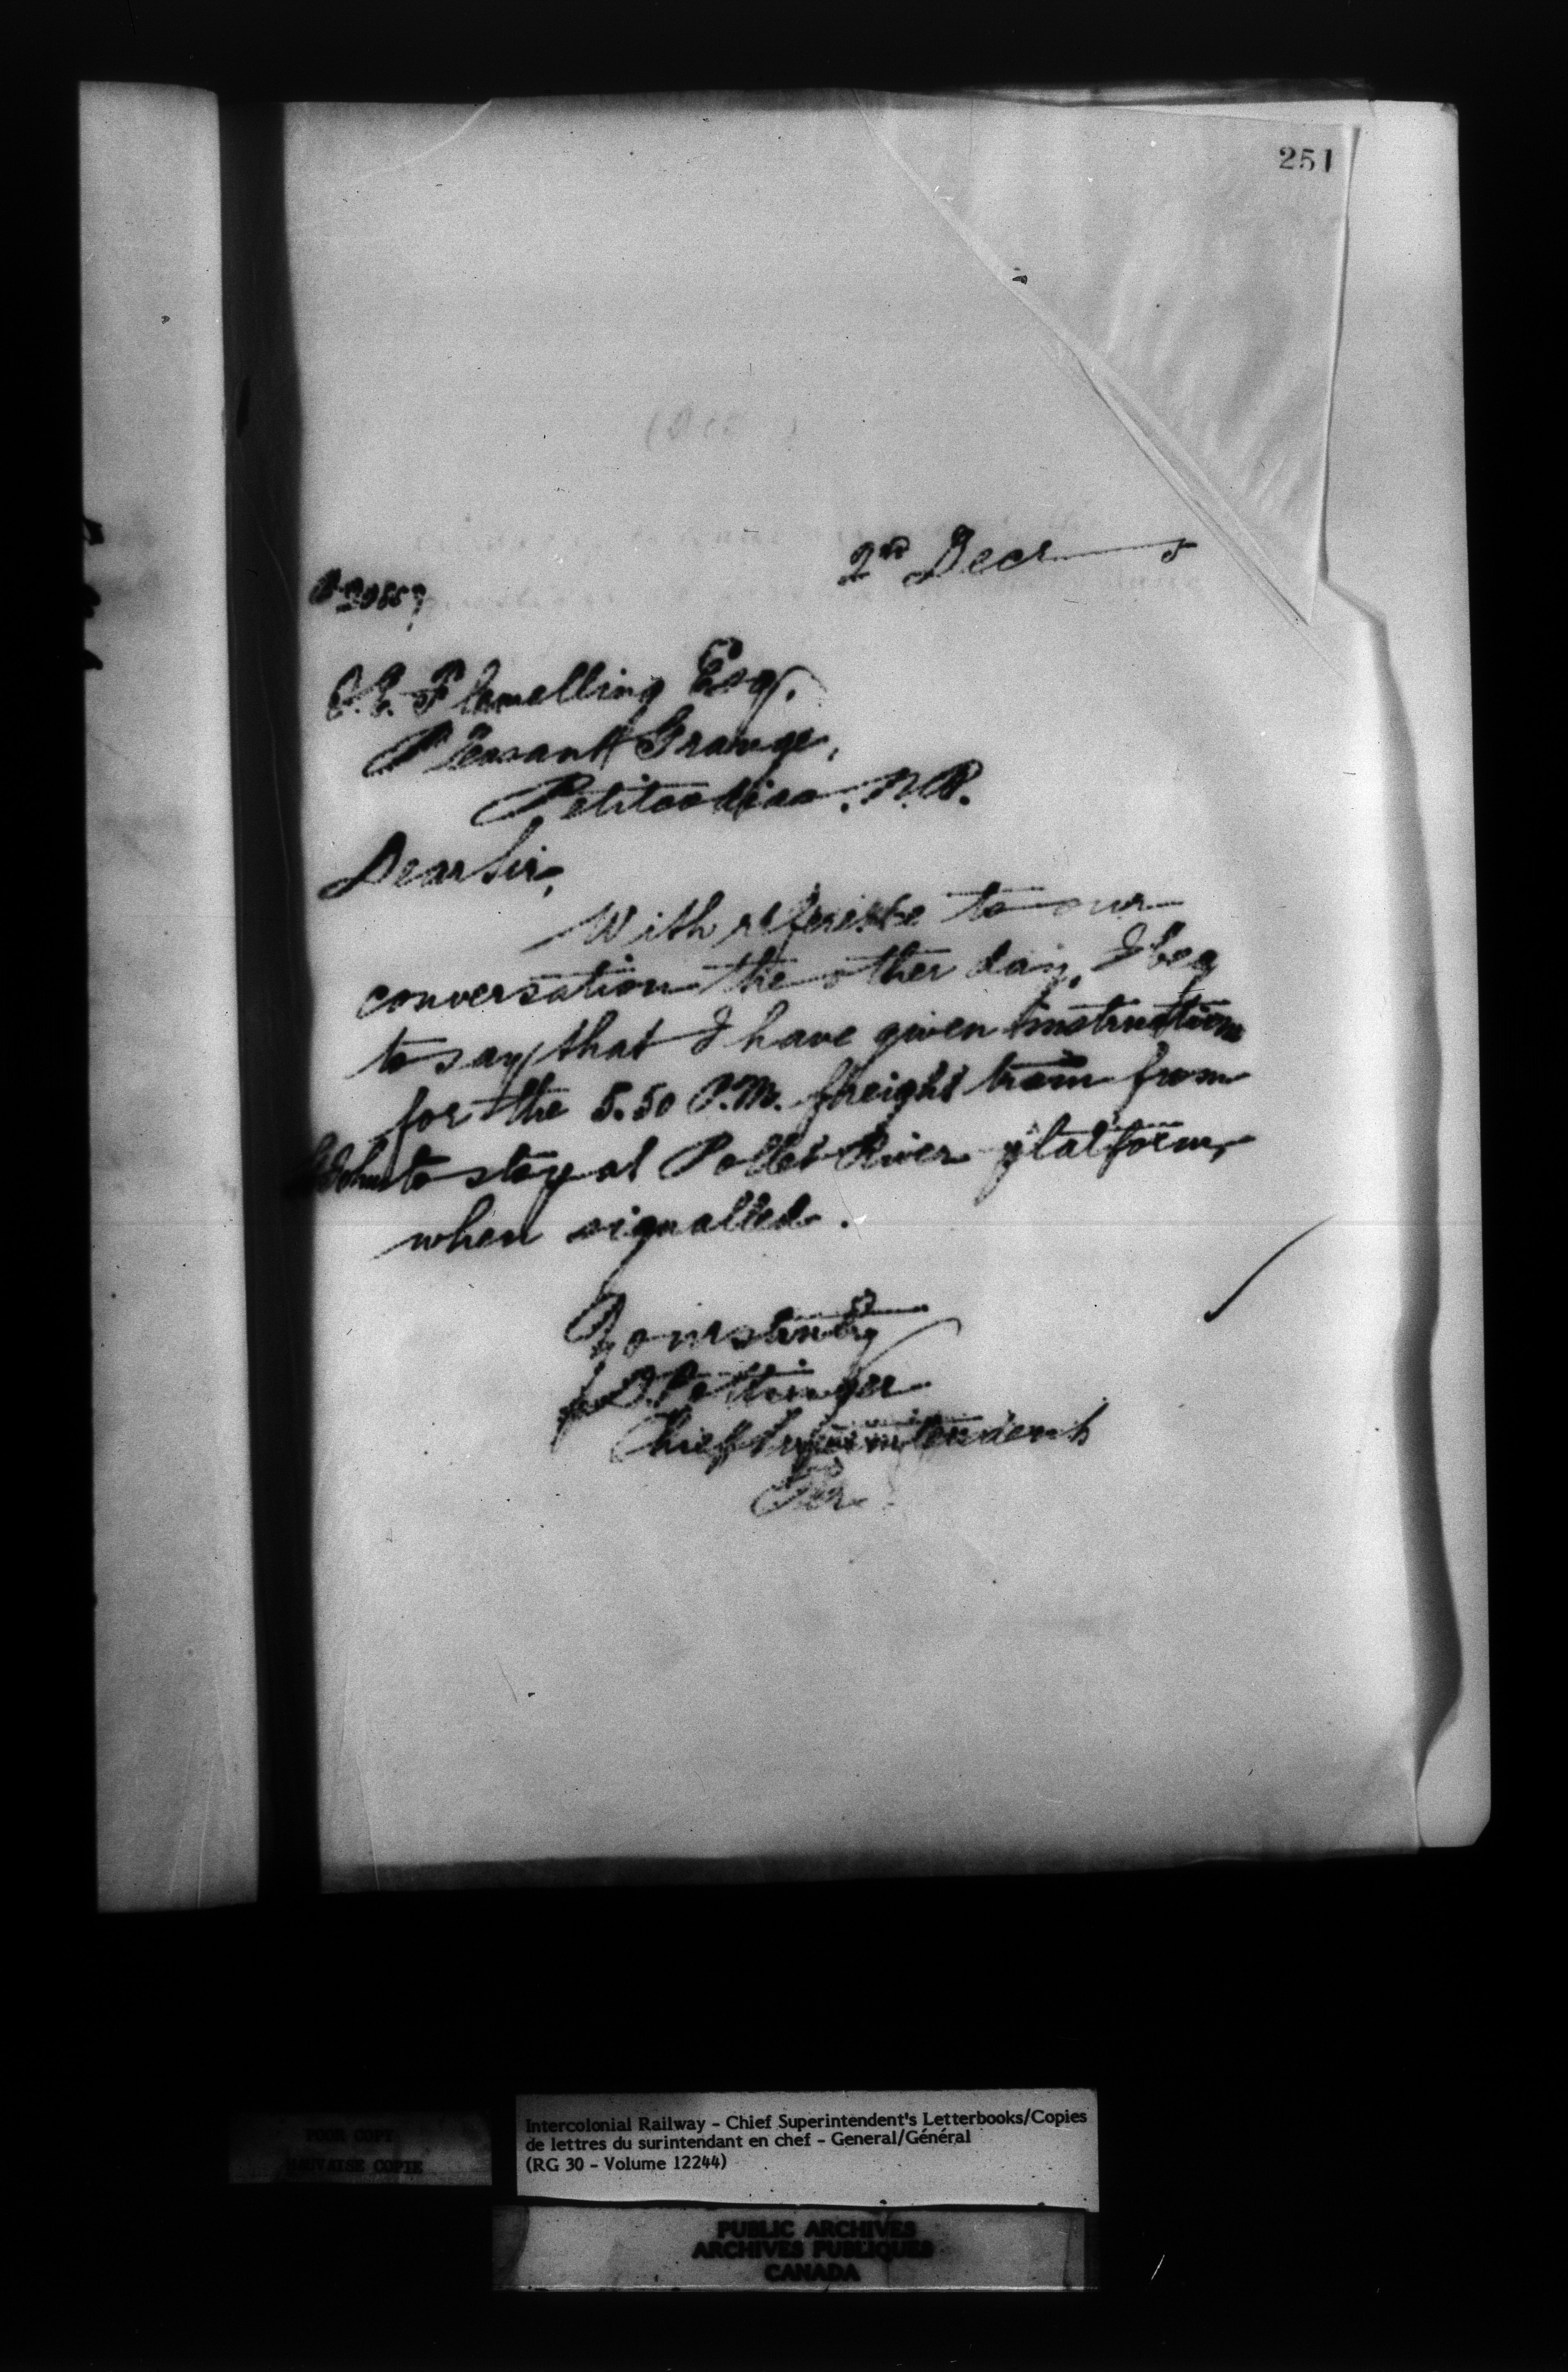 251
2nd Decr 5
Flewelling Esq.
Pleasant Grange,
Petitcodiac. N.B.
Dear Sir,
With reference to our
conversation the other day, I beg
to say that I have given instructions
for the 5.50 P.M. freight train from
St John to stop at Pollet River platform,
when signalled.
Yours truly
D. Pottinger
Chief Superintendent
Per
POOR COPY
MAUVAISE COPIE
Intercolonial Railway - Chief Superintendent's Letterbooks/Copies
de lettres du surintendant en chef - General/Général
(RG 30 - Volume 12244)
PUBLIC ARCHIVES
ARCHIVES PUBLIQUES
CANADA